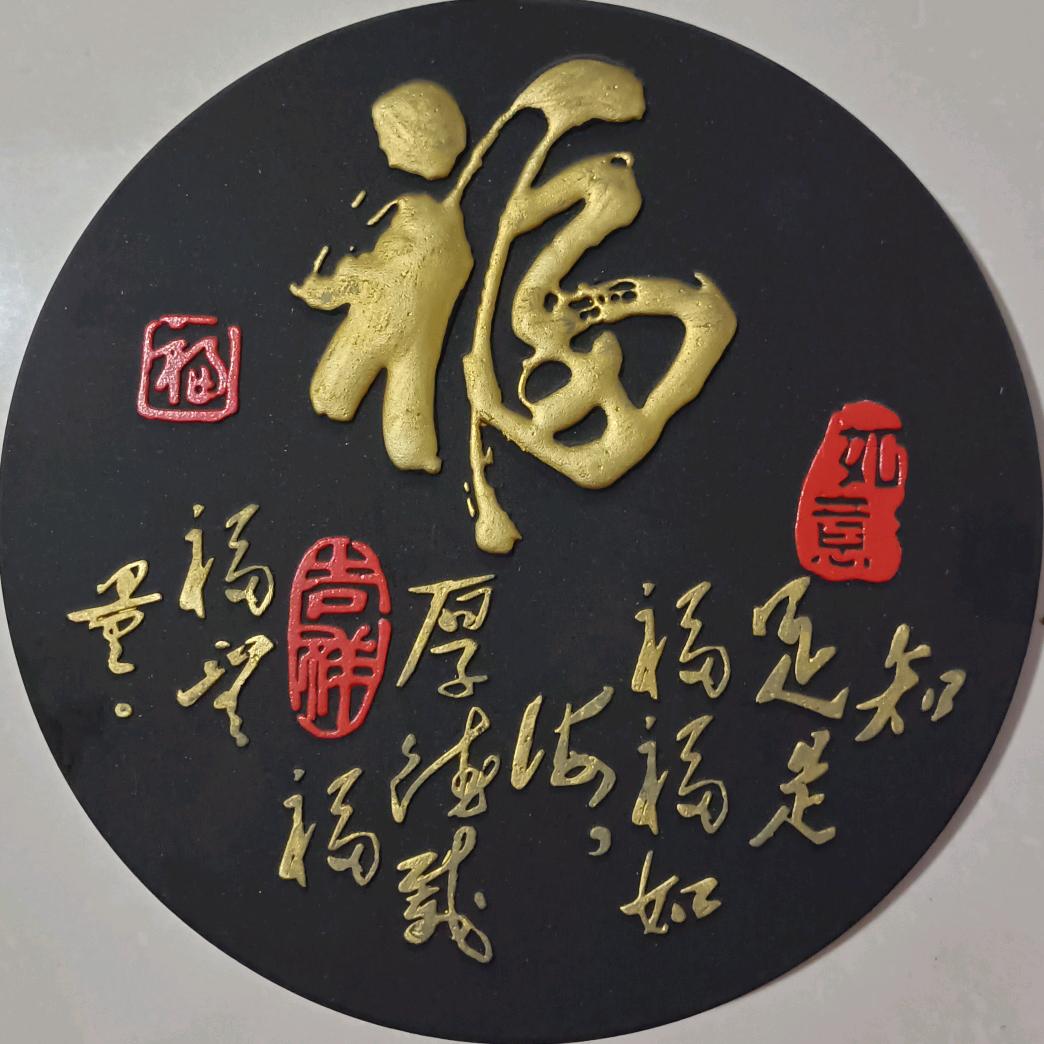 福
如意
知
足是
福福如
海，
厚德载
吉祥
福
福
量。
福